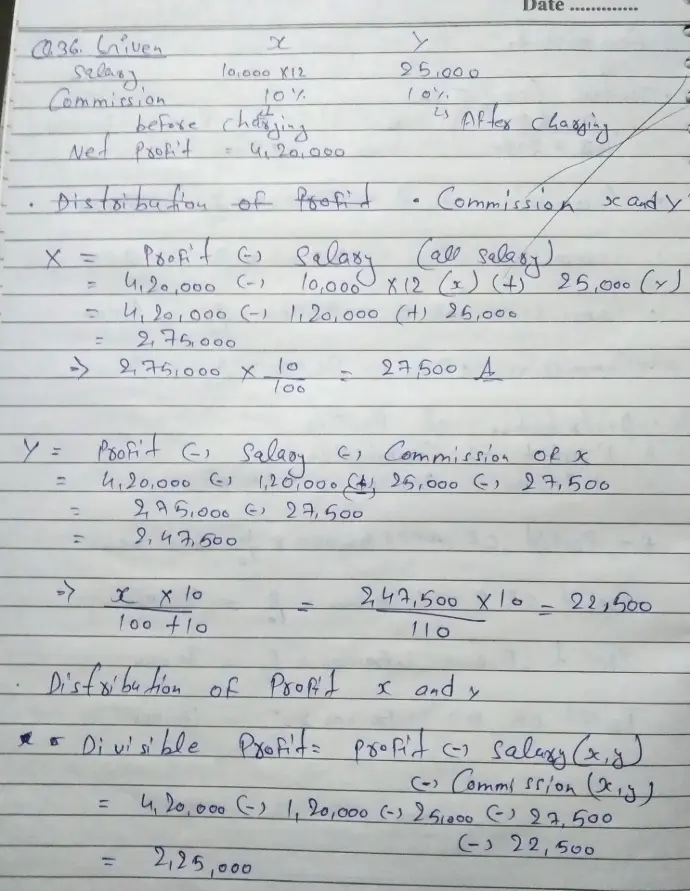 Date .............
Q36. Given x y
Salary 10,000 X12 25,000
Commission 10% 10%
before charging ↳ After charging
Net Profit = 4,20,000
· Distribution of Profit · Commission x and y
X = Profit (-) Salary (all salary)
= 4,20,000 (-) 10,000 X12 (x) (+) 25,000 (y)
= 4,20,000 (-) 1,20,000 (+) 25,000
= 2,75,000
=> 2,75,000 X 10/100 = 27,500 A
Y = Profit (-) Salary (-) Commission of x
= 4,20,000 (-) 1,20,000 (+) 25,000 (-) 27,500
= 2,75,000 (-) 27,500
= 2,47,500
=> x X 10 / 100 + 10 = 2,47,500 X 10 / 110 = 22,500
· Distribution of Profit x and y
Divisible Profit = Profit (-) Salary (x,y)
(-) Commission (x,y)
= 4,20,000 (-) 1,20,000 (-) 25,000 (-) 27,500
(-) 22,500
= 2,25,000